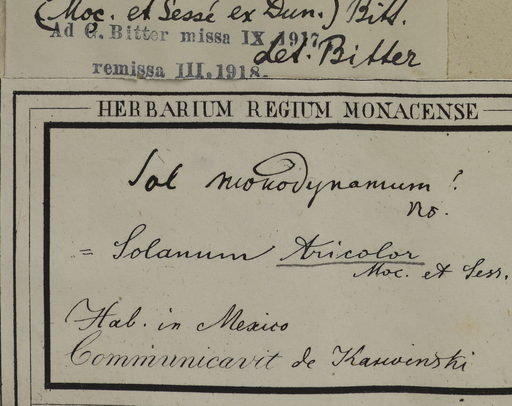 (Moç. et Sessé ex Dun.) Bitt.
Ad G. Bitter missa IX. 1917.
det. Bitter
remissa III. 1918.
HERBARIUM REGIUM MONACENSE
Sol monodynamum!
no.
= Solanum tricolor
Moc. et Sess.
Hab. in Mexico
Communicavit de Karwinski